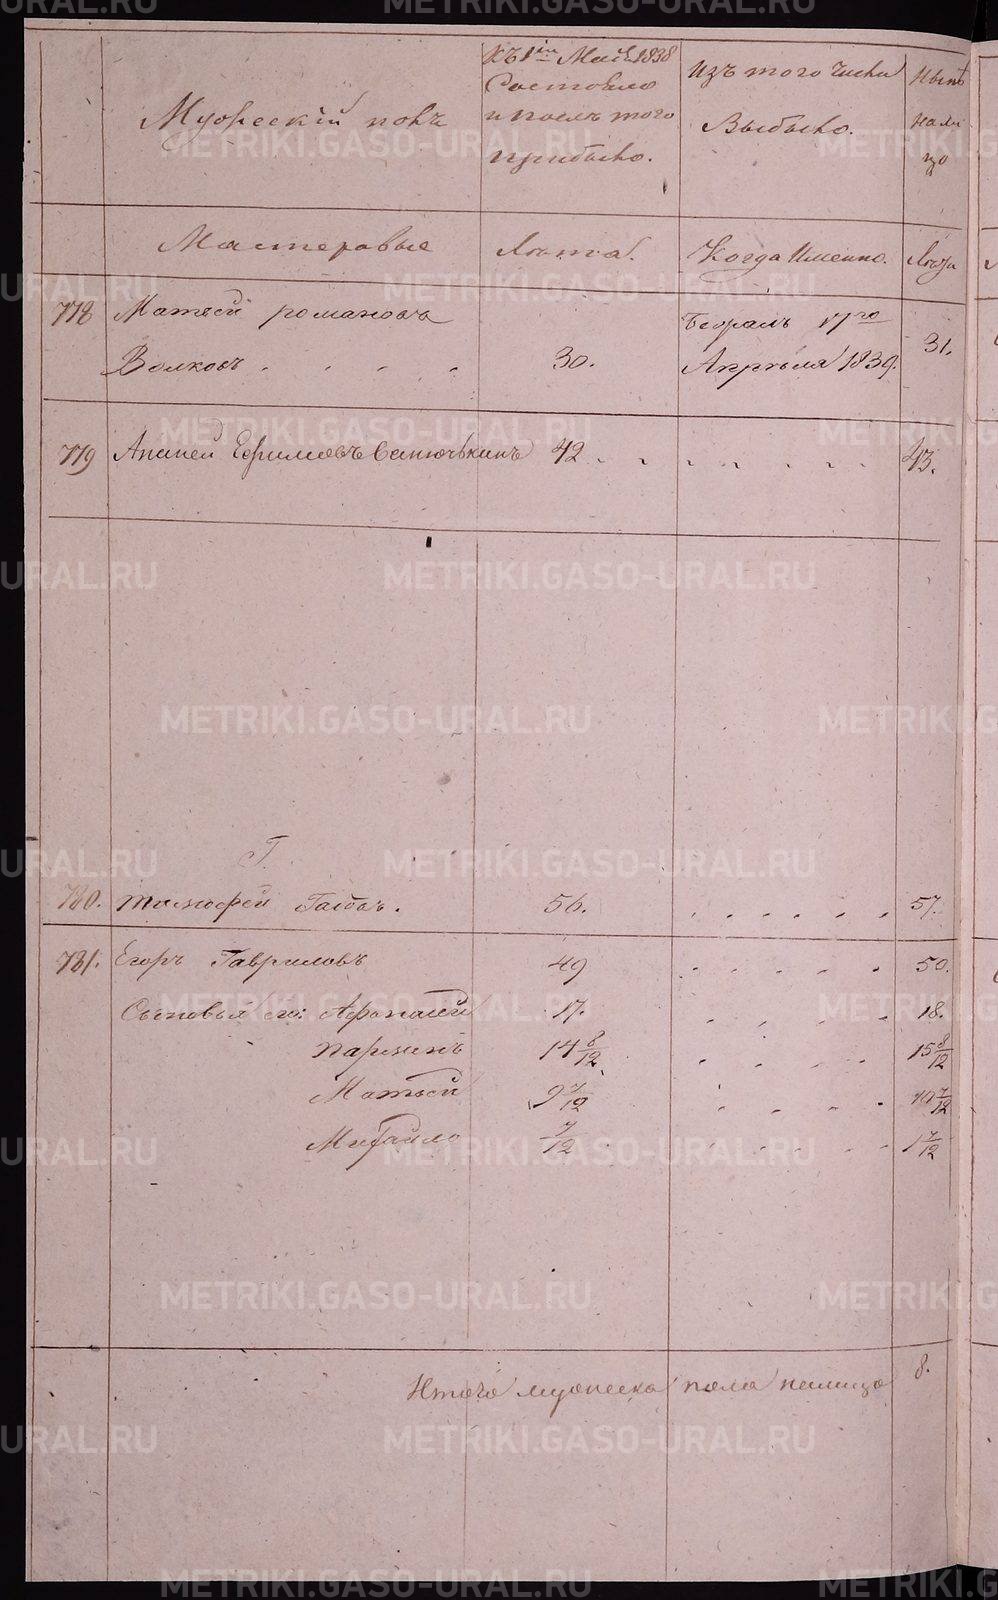 Мужескій полъ
Къ 1му Маія 1838
Состояло
и после того
прибыло.
Изъ того числа
Выбыло.
Ныне
нали
цо
Мастеровые
Лѣта.
Когда Именно.
Лѣта
778 Матвей романовъ
Волковъ . . . . . 30.
Бѣжалъ 17го
Апрѣля 1839.
31.
779 Ананей Ефимовъ Сенюшкинъ 42 . . . . . . . 43.
Г.
780. тимофей Габовъ. 56. . . . . . . 57.
781. Егоръ Гавриловъ 49 . . . . 50.
Сыновья его: Афонасей 17. . . . . 18.
парменъ 14 8/12 . . . . 15 8/12
Матвей 9 7/12 . . . . 10 7/12
Михайло 7/12 . . . . 1 7/12
Итого мужеска пола налицо 8.
METRIKI.GASO-URAL.RU